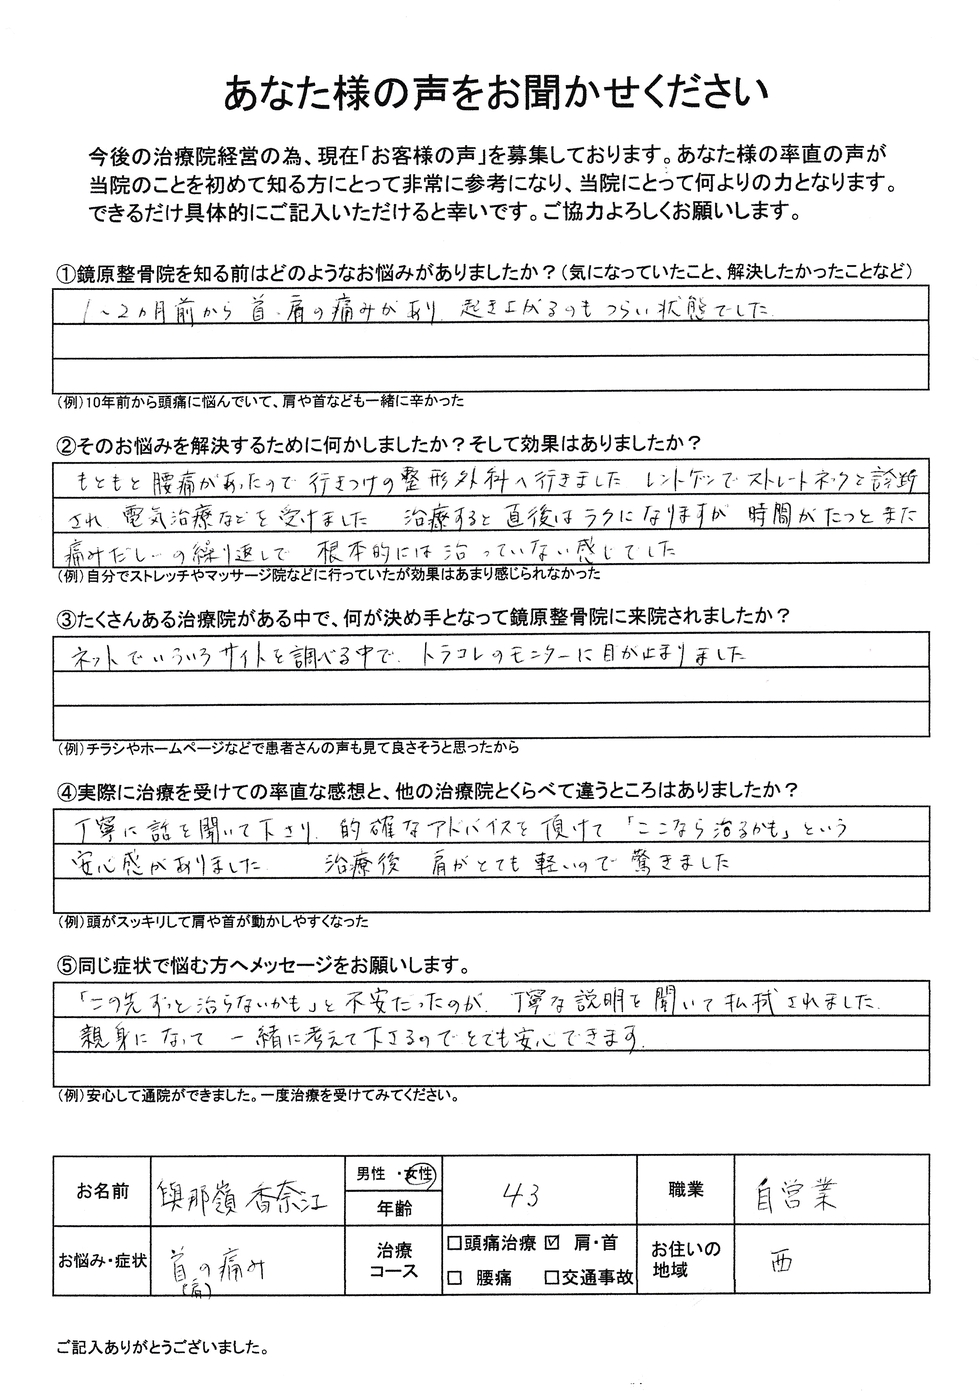 あなた様の声をお聞かせください
今後の治療院経営の為、現在「お客様の声」を募集しております。あなた様の率直の声が
当院のことを初めて知る方にとって非常に参考になり、当院にとって何よりの力となります。
できるだけ具体的にご記入いただけると幸いです。ご協力よろしくお願いします。
①鏡原整骨院を知る前はどのようなお悩みがありましたか？（気になっていたこと、解決したかったことなど）
1～2ヵ月前から首・肩の痛みがあり、起き上がるのもつらい状態でした.
（例）10年前から頭痛に悩んでいて、肩や首なども一緒に辛かった
②そのお悩みを解決するために何かしましたか？そして効果はありましたか？
もともと腰痛があったので行きつけの整形外科へ行きました レントゲンでストレートネックと診断
され 電気治療などを受けました 治療すると直後はラクになりますが 時間がたつとまた
痛みだし…の繰り返しで 根本的には治っていない感じでした
（例）自分でストレッチやマッサージ院などに行っていたが効果はあまり感じられなかった
③たくさんある治療院がある中で、何が決め手となって鏡原整骨院に来院されましたか？
ネットでいろいろサイトを調べる中で、トラコレのモニターに目が止まりました
（例）チラシやホームページなどで患者さんの声も見て良さそうと思ったから
④実際に治療を受けての率直な感想と、他の治療院とくらべて違うところはありましたか？
丁寧に話を聞いて下さり、的確なアドバイスを頂けて「ここなら治るかも」という
安心感がありました 治療後 肩がとても軽いので驚きました
（例）頭がスッキリして肩や首が動かしやすくなった
⑤同じ症状で悩む方へメッセージをお願いします。
「この先ずっと治らないかも」と不安だったのが、丁寧な説明を聞いて払拭されました.
親身になって 一緒に考えて下さるのでとても安心できます.
（例）安心して通院ができました。一度治療を受けてみてください。
お名前 與那嶺 香奈江 男性 ・女性 年齢 43 職業 自営業
お悩み・症状 首の痛み (肩) 治療コース □頭痛治療 ☑ 肩・首 □ 腰痛 □交通事故 お住いの地域 西
ご記入ありがとうございました。